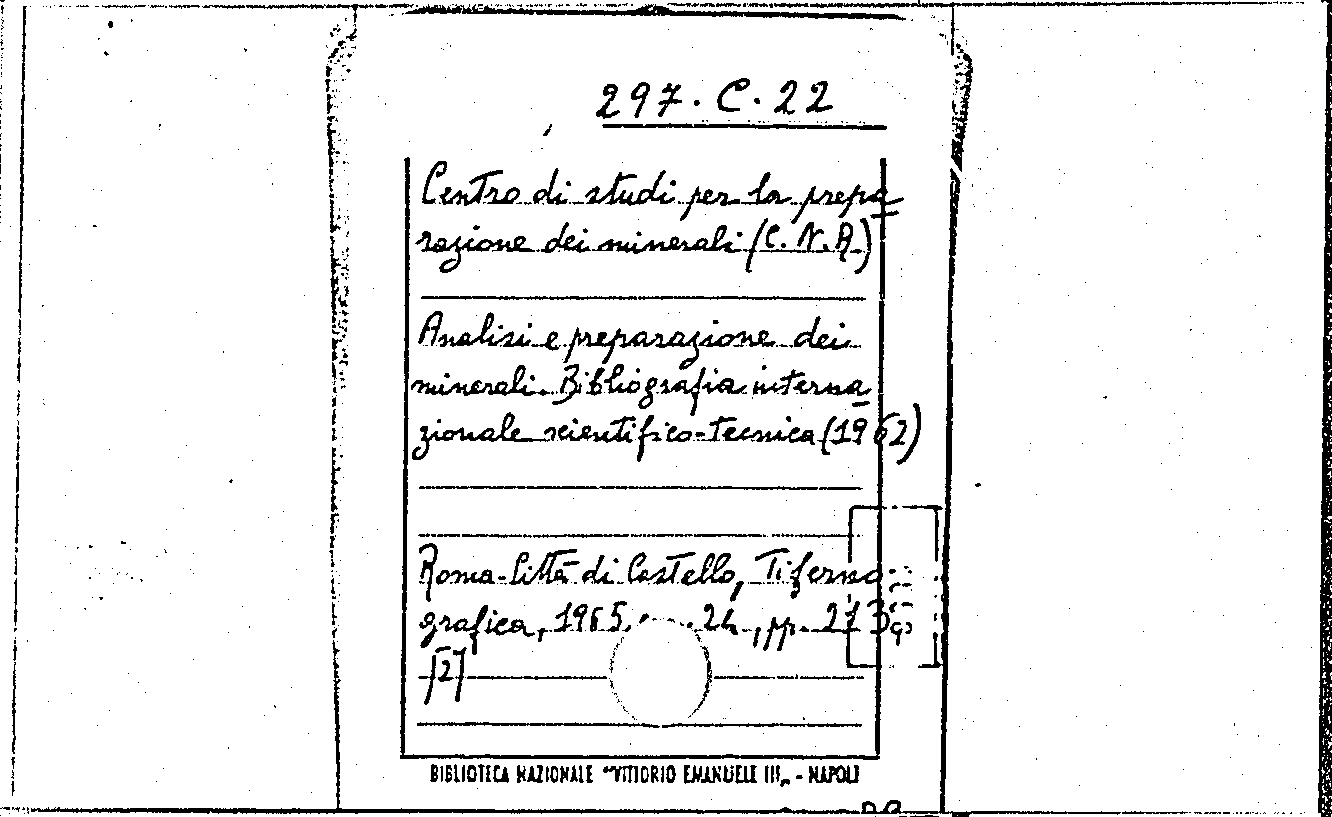 297. C. 22
Centro di studi per la prepa
razione dei minerali (C. N. R.)
Analisi e preparazione dei
minerali. Bibliografia interna
zionale scientifico-tecnica (1962)
Roma-Città di Castello, Tiferno
grafica, 1965, 24, pp. 213
[2]
BIBLIOTECA NAZIONALE "VITTORIO EMANUELE III„ - NAPOLI